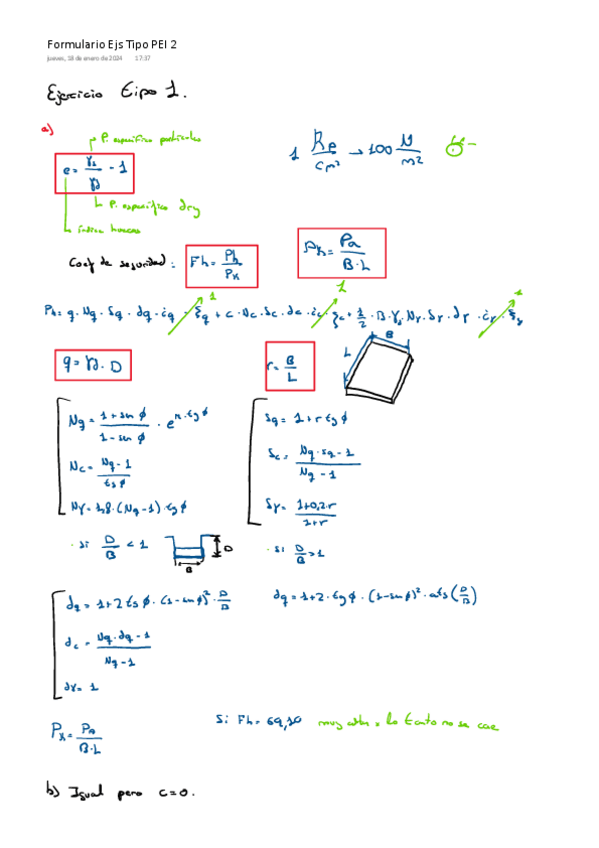 Formulario Ejs Tipo PEI 2
jueves, 18 de enero de 2024 17:37
Ejercicio tipo 1.
a)
P. específico partículas
e = γs/γd - 1
P. específico dry
índice huecos
1 Kp/cm² → 100 N/m²
Coef de seguridad: Fh = Ph/Pk
Pk = Pa/B·L
Ph = q · Nq · Sq · dq · iq · ξq + c · Nc · Sc · dc · ic · ξc + 1/2 · B · γs · Nγ · Sγ · dγ · iγ · ξγ
1
1
1
q = γd · D
r = B/L
B
L
Nq = 1 + sen ϕ / 1 - sen ϕ · e^π·tg ϕ
Sq = 1 + r tg ϕ
Nc = Nq - 1 / tg ϕ
Sc = Nq · sq - 1 / Nq - 1
Nγ = 1,8 · (Nq - 1) · tg ϕ
Sγ = 1+0,2·r / 1+r
· si D/B < 1
D
B
· si D/B > 1
dq = 1 + 2 tg ϕ · (1 - sen ϕ)² · D/B
dq = 1 + 2 · tg ϕ · (1 - sen ϕ)² · atg (D/B)
dc = Nq · dq - 1 / Nq - 1
dγ = 1
Pk = Pa/B·L
Si Fh = 69,20 muy alta = lo tanto no se cae
b) Igual pero c = 0.